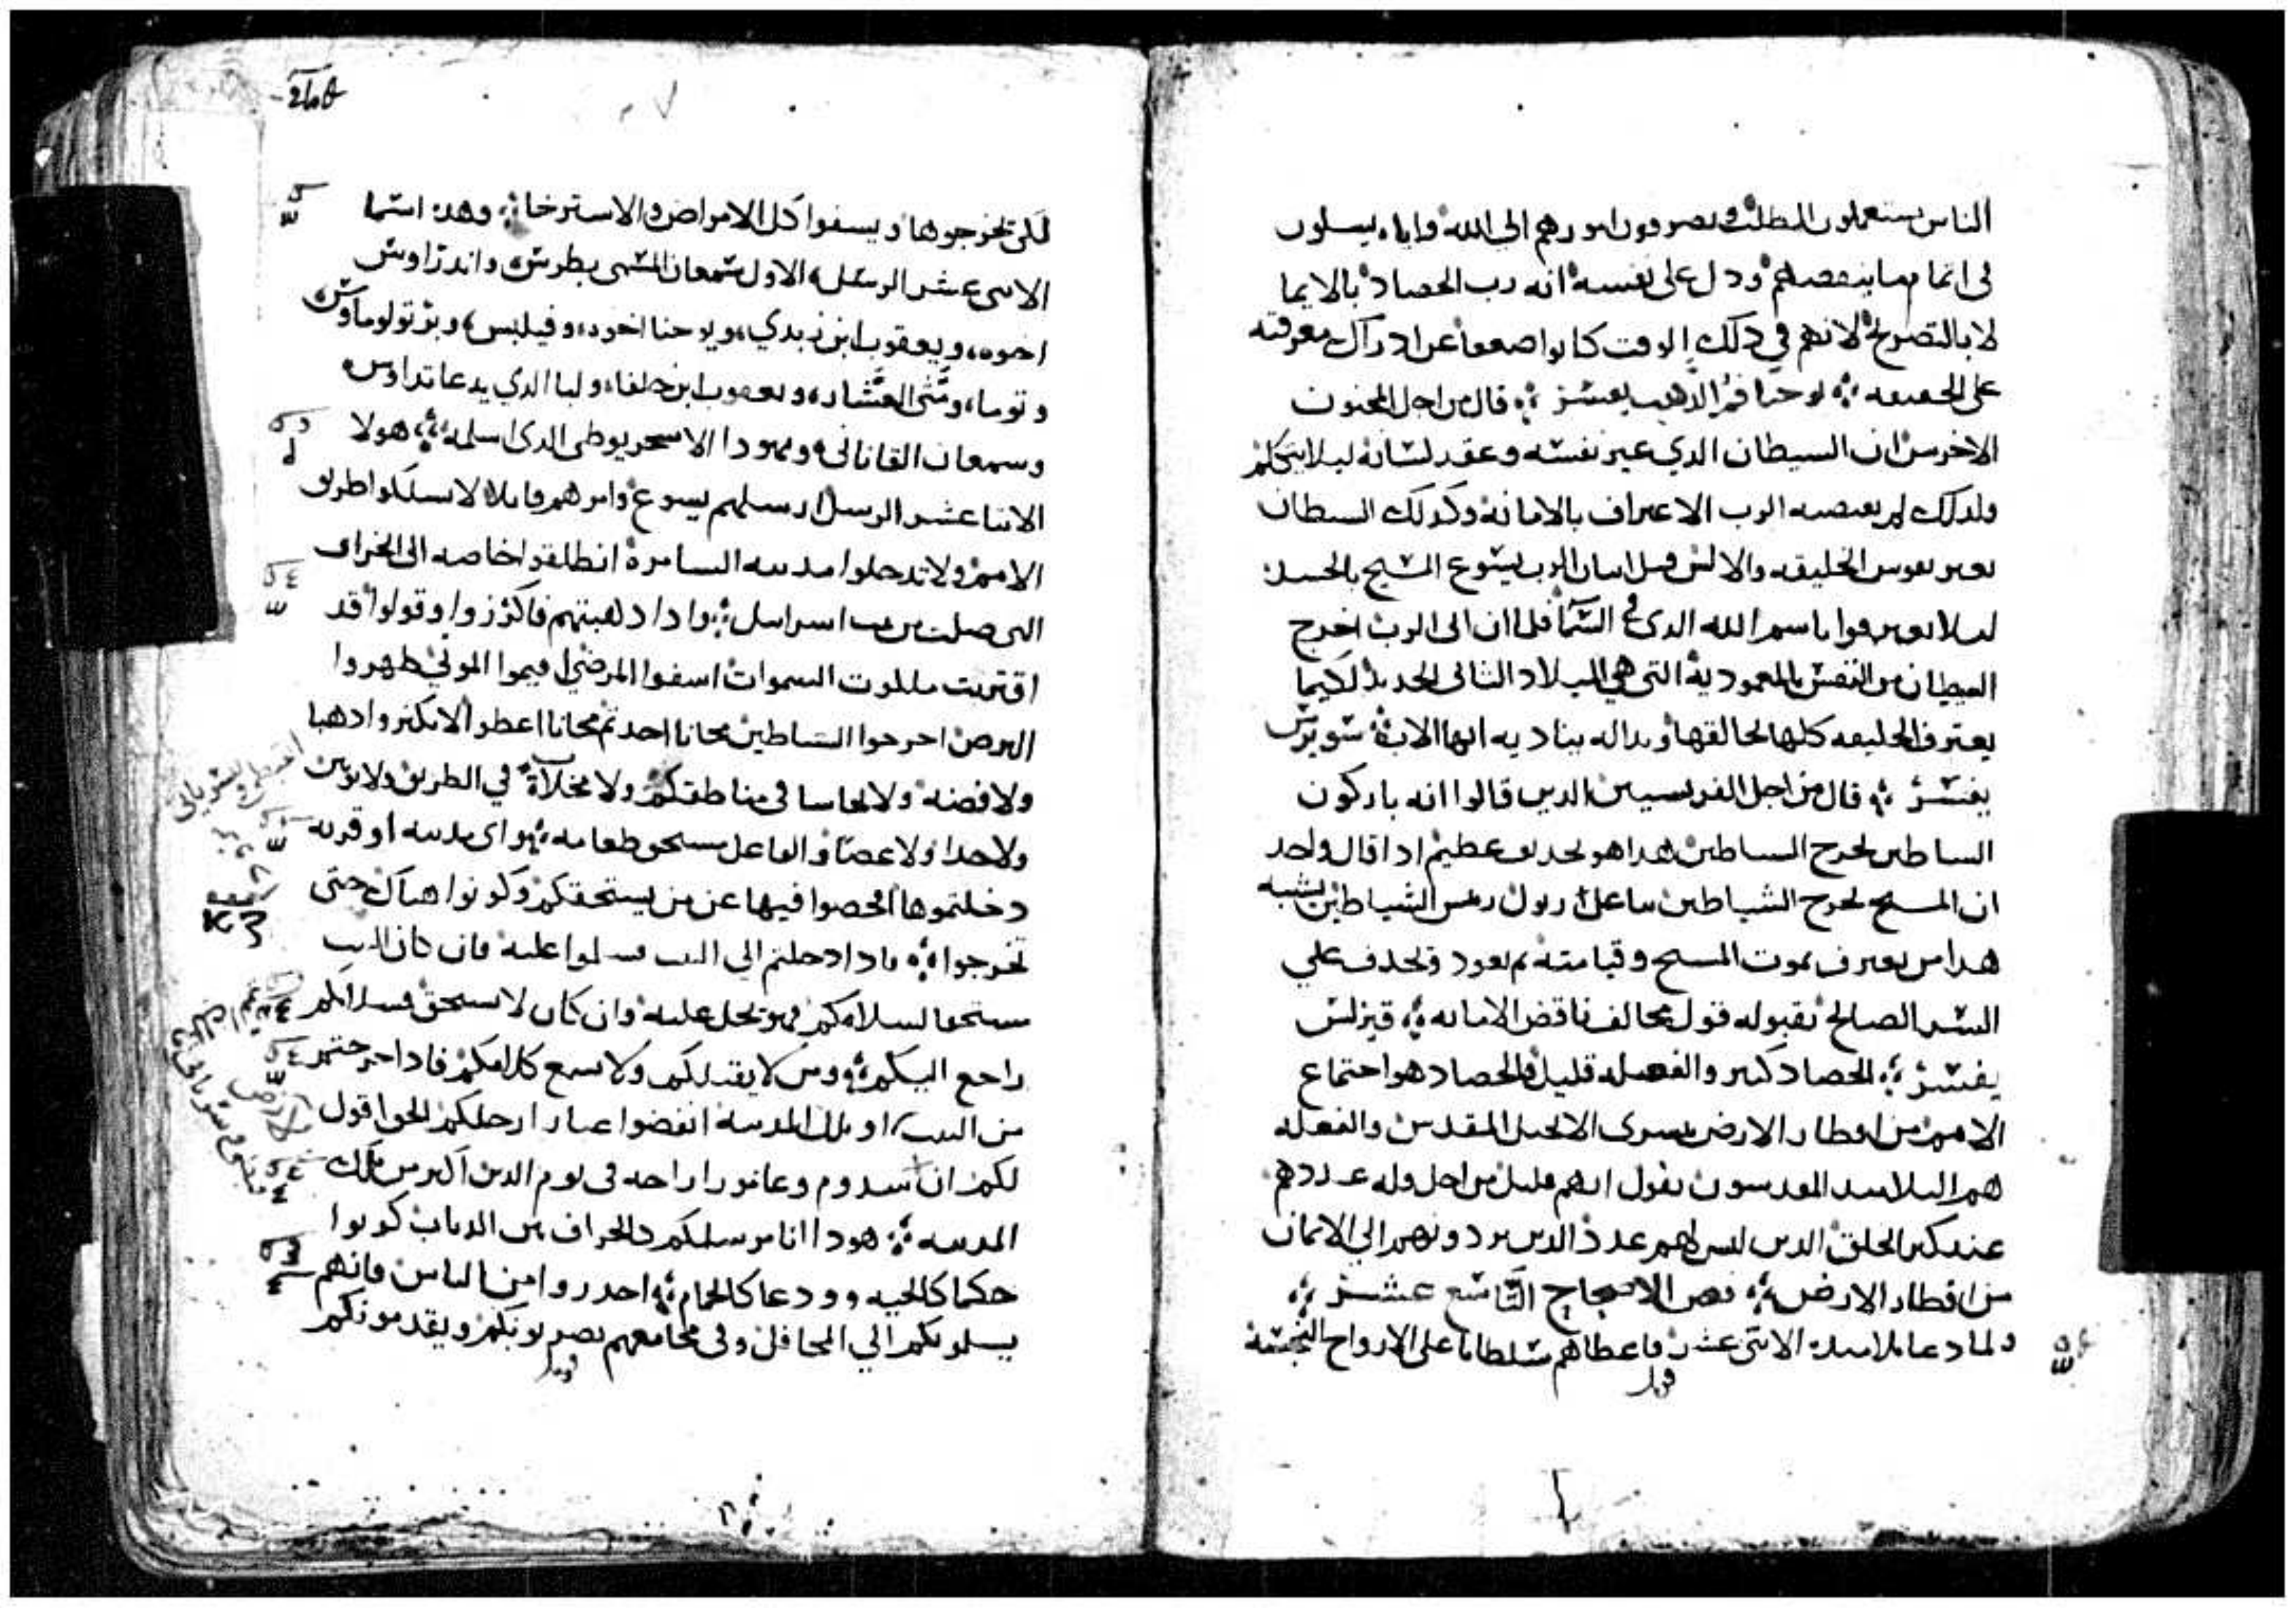 الناس يستعملون الطلبه ويصرفون امورهم الى الله واياه يسلون
في انما بما ينقصهم ودل على نفسه انه رب الحصاد بالايما
لا بالتصريح لانهم في ذلك الوقت كانوا ضعفا عن ادراك معرفته
على الحقيقه يوحنا فم الذهب يفسر قال من اجل المجنون
الاخرس ان السيطان الدي عير نفسه وعقد لسانه ليلا يتكلم
ولدلك لم يقتصه الرب الاعتراف بالامانه وكدلك السيطان
نفوس الخليقه والالسن قبل اتيان الرب يسوع المسيح بالجسد
ليلا يعترفوا باسم الله الدى في السما فلما ان اتى الرب اخرج
الشيطان من النفس بالمعمودية التى هي الميلاد التانى الجديد لكيما
يعترف الخليقه كلها لخالقها وبداله يناديه ايها الاب سويرس
يفسر قال من اجل الفريسيين الدين قالوا انه باركون
الساطين يخرج الساطين هدا هو تجديف عظيم ادا قال واحد
ان المسيح يخرج الشياطين بباعل زبول ريس الشياطين يشبه
هدا من يعترف بموت المسيح وقيامته تم يعود ويجدف علي
السر الصالح بقبوله قول مخالف ناقض الامانه قيرلس
يفسر الحصاد كتير والفعله قليل فالحصاد هو اجتماع
الامم من اقطار الارض ببشرى الانجيل المقدس والفعله
هم التلاميد المقدسون يقول انهم قليل من اجل قله عددهم
عند كتر الخلق الدين ليس لهم عدد الدين يردونهم الي الايمان
من اقطار الارض نص الاصحاح التاسع عشر
ولما دعا تلاميده الاتنى عشر فاعطاهم سلطانا على الارواح النجسه
لكى تخرجوها ويسفوا كل الامراض والاسترخا وهده اسما
الاتنى عشر الرسل الاول سمعان المسمى بطرس واندراوس
اخوه ويعقوب ابن زبدي ويوحنا اخوه وفيلبس وبرتولوماوس
وتوما ومتى العشار ويعقوب ابن حلفا ولبا الدي يدعا تداوس
وسمعان القانانى ويهودا الاسخريوطى الدى اسلمه هولا
الاتنا عشر الرسل ارسلهم يسوع وامرهم قايلا لا تسلكوا طريق
الامم ولا تدخلوا مدينه السامرة انطلقوا خاصه الى الخراف
التى ضلت من بيت اسراييل وادا دهبتم فاكرزوا وقولوا قد
اقتربت ملكوت السموات اسفوا المرضى اقيموا الموتى طهروا
البرص اخرجوا الشياطين مجانا اخدتم مجانا اعطوا لا تكنزوا دهبا
ولا فضه ولا نحاسا فى مناطقكم ولا مخلاة في الطريق ولا توبين
ولا حدا ولا عصا والفاعل مستحق طعامه واى مدينه او قريه
دخلتموها افحصوا فيها عن من يستحقكم وكونوا هناك حتى
تخرجوا فادا دخلتم الي البيت فسلموا عليه فان كان البيت
مستحقا لسلامكم فهو يحل عليه وان كان لا يستحق فسلامكم
راجع اليكم ومن لا يقبلكم ولا يسمع كلامكم فادا خرجتم
من البيت او تلك المدينه انفضوا غبار ارجلكم الحق اقول
لكم ان سدوم وعامورا راحه فى يوم الدين اكبر من تلك
المدينه هودا انا مرسلكم كالخراف بين الدياب كونوا
حكما كالحيه وودعا كالحمام احدروا من الناس فانهم
يسلمونكم الي المحافل وفى مجامعهم يضربونكم ويقدمونكم